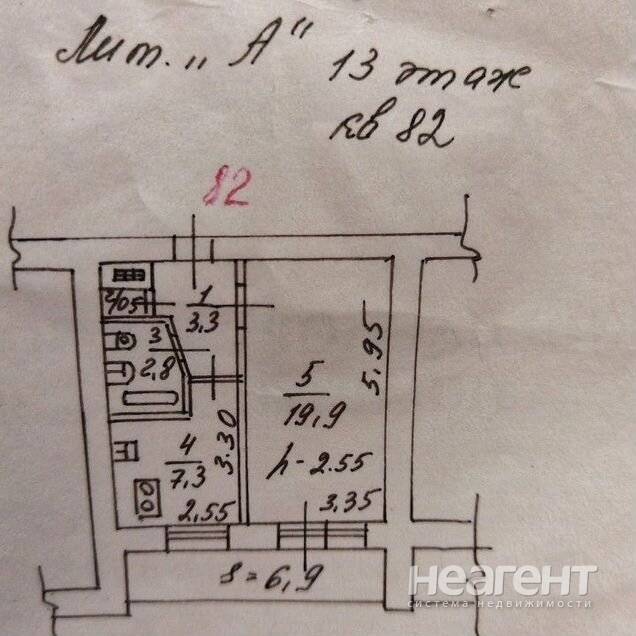 Лит. „А“
13 этаж
кв 82
82
2/0,5
1
3.3
3
2,8
5
19,9
5,95
4
7,3
3.30
h-2.55
2,55
3,35
S=6,9
НЕАГЕНТ
система недвижимости